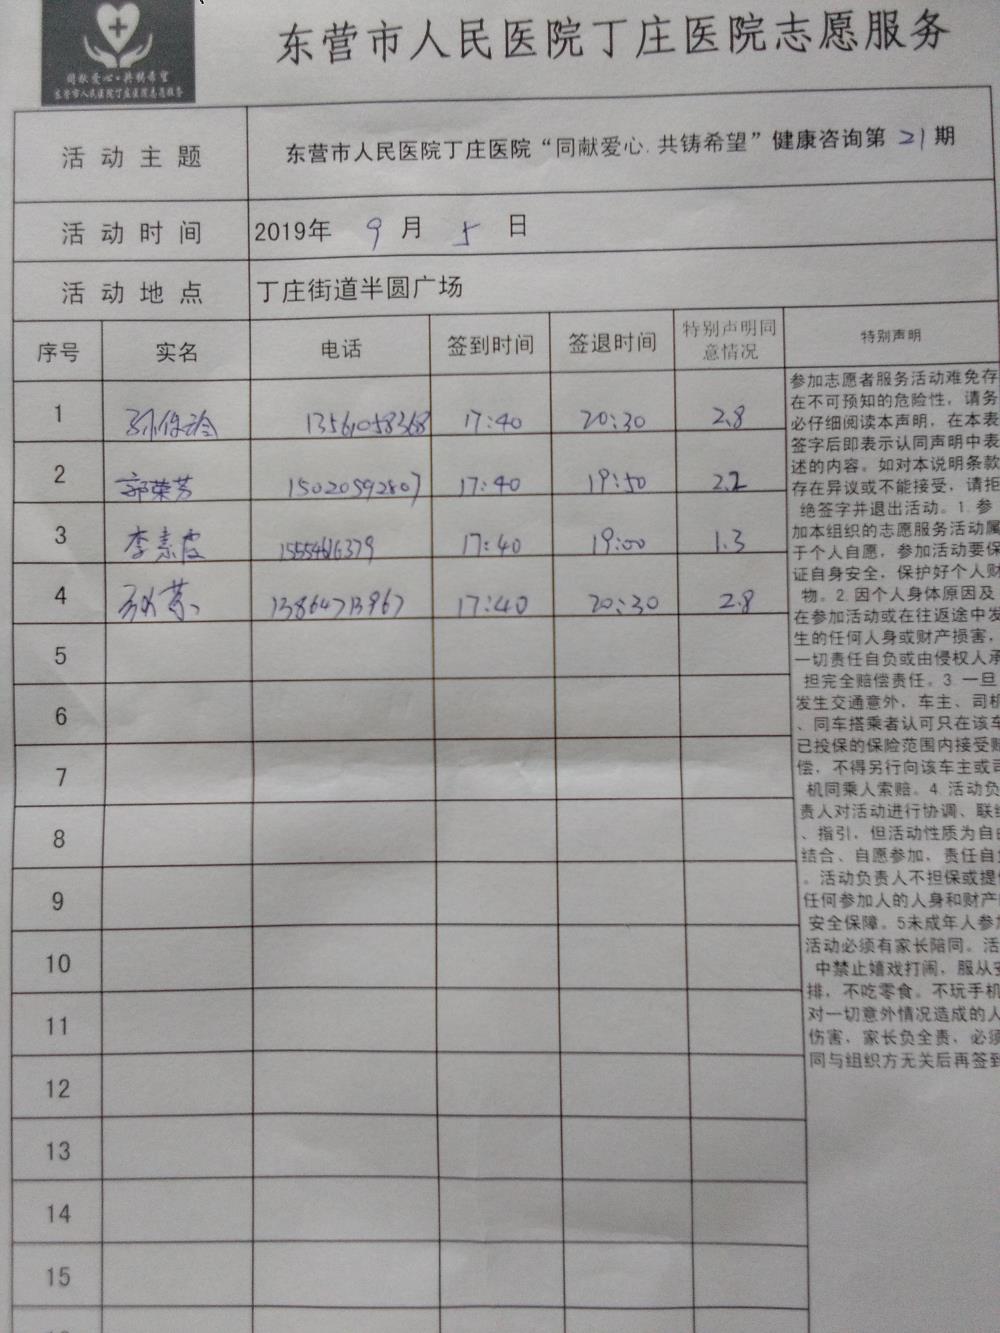 同献爱心·共铸希望
东营市人民医院丁庄医院志愿服务
东营市人民医院丁庄医院志愿服务
活动主题
东营市人民医院丁庄医院“同献爱心.共铸希望”健康咨询第 21 期
活动时间
2019年 9 月 5 日
活动地点
丁庄街道半圆广场
序号 实名 电话 签到时间 签退时间 特别声明同意情况 特别声明
1 13561058368 17:40 20:30 2.8
2 郭荣芳 15020592807 17:40 19:50 2.2
3 李素 17:40 19:00 1.3
4 13864713967 17:40 20:30 2.8
5
6
7
8
9
10
11
12
13
14
15
参加志愿者服务活动难免存
在不可预知的危险性，请务
必仔细阅读本声明，在本表
签字后即表示认同声明中表
述的内容。如对本说明条款
存在异议或不能接受，请拒
绝签字并退出活动。1.参
加本组织的志愿服务活动属
于个人自愿，参加活动要保
证自身安全，保护好个人财
物。2.因个人身体原因及
在参加活动或在往返途中发
生的任何人身或财产损害，
一切责任自负或由侵权人承
担完全赔偿责任。3.一旦
发生交通意外，车主、司机
、同车搭乘者认可只在该车
已投保的保险范围内接受赔
偿，不得另行向该车主或司
机同乘人索赔。4.活动负
责人对活动进行协调、联络
、指引，但活动性质为自由
结合、自愿参加，责任自负
。活动负责人不担保或提供
任何参加人的人身和财产
安全保障。5未成年人参加
活动必须有家长陪同。活
中禁止嬉戏打闹，服从安
排，不吃零食。不玩手机
对一切意外情况造成的人
伤害，家长负全责，必须
同与组织方无关后再签到